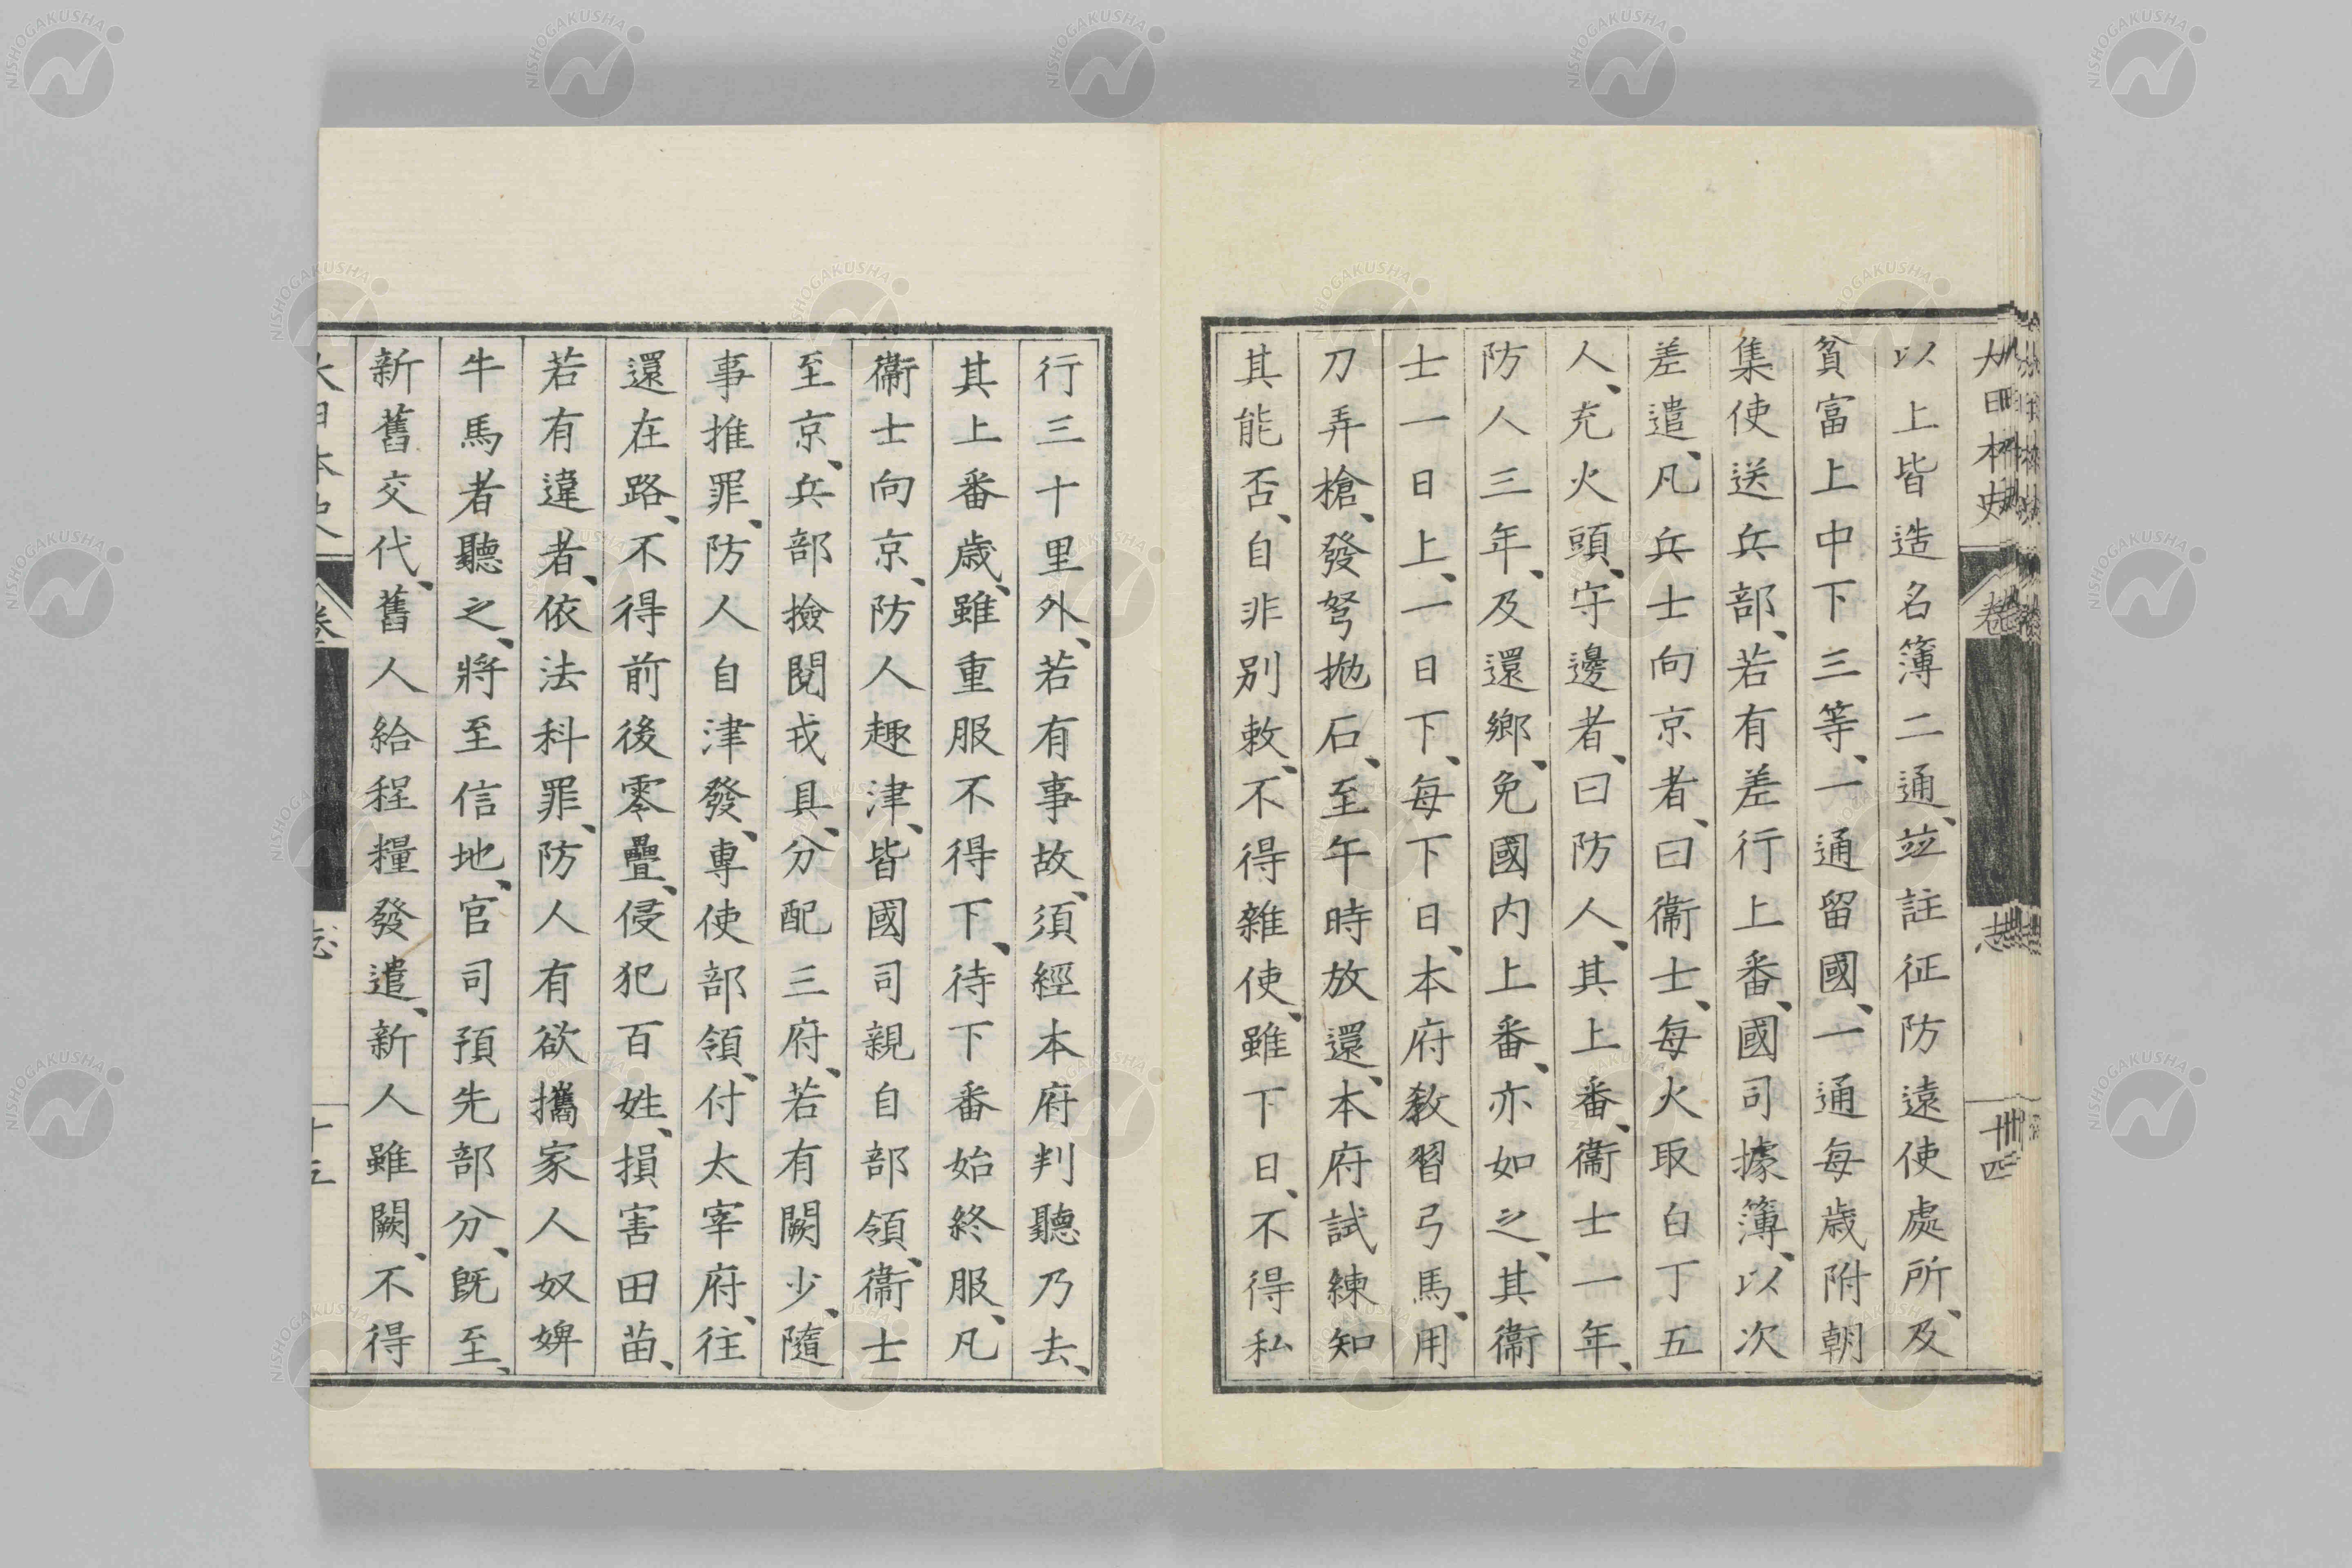 大日本史
卷
志
十四
以上皆造名簿二通、並註征防遠使處所、及
貧富上中下三等、一通留國、一通每歲附朝
集使送兵部、若有差行上番、國司據簿、以次
差遣、凡兵士向京者、曰衞士、每火取白丁五
人、充火頭、守邊者、曰防人、其上番、衞士一年、
防人三年、及還鄉、免國内上番、亦如之、其衞
士一日上、一日下、每下日、本府敎習弓馬、用
刀弄槍、發弩拋石、至午時放還、本府試練知
其能否、自非別敕、不得雜使、雖下日、不得私
行三十里外、若有事故、須經本府判聽乃去、
其上番歲、雖重服不得下、待下番始終服、凡
衞士向京、防人趣津、皆國司親自部領、衞士
至京、兵部撿閱戎具、分配三府、若有闕少、隨
事推罪、防人自津發、專使部領、付太宰府、往
還在路、不得前後零疊、侵犯百姓、損害田苗、
若有違者、依法科罪、防人有欲攜家人奴婢
牛馬者聽之、將至信地、官司預先部分、旣至、
新舊交代、舊人給程糧發遣、新人雖闕、不得
大日本史
卷
志
十五
NISHOGAKUSHA